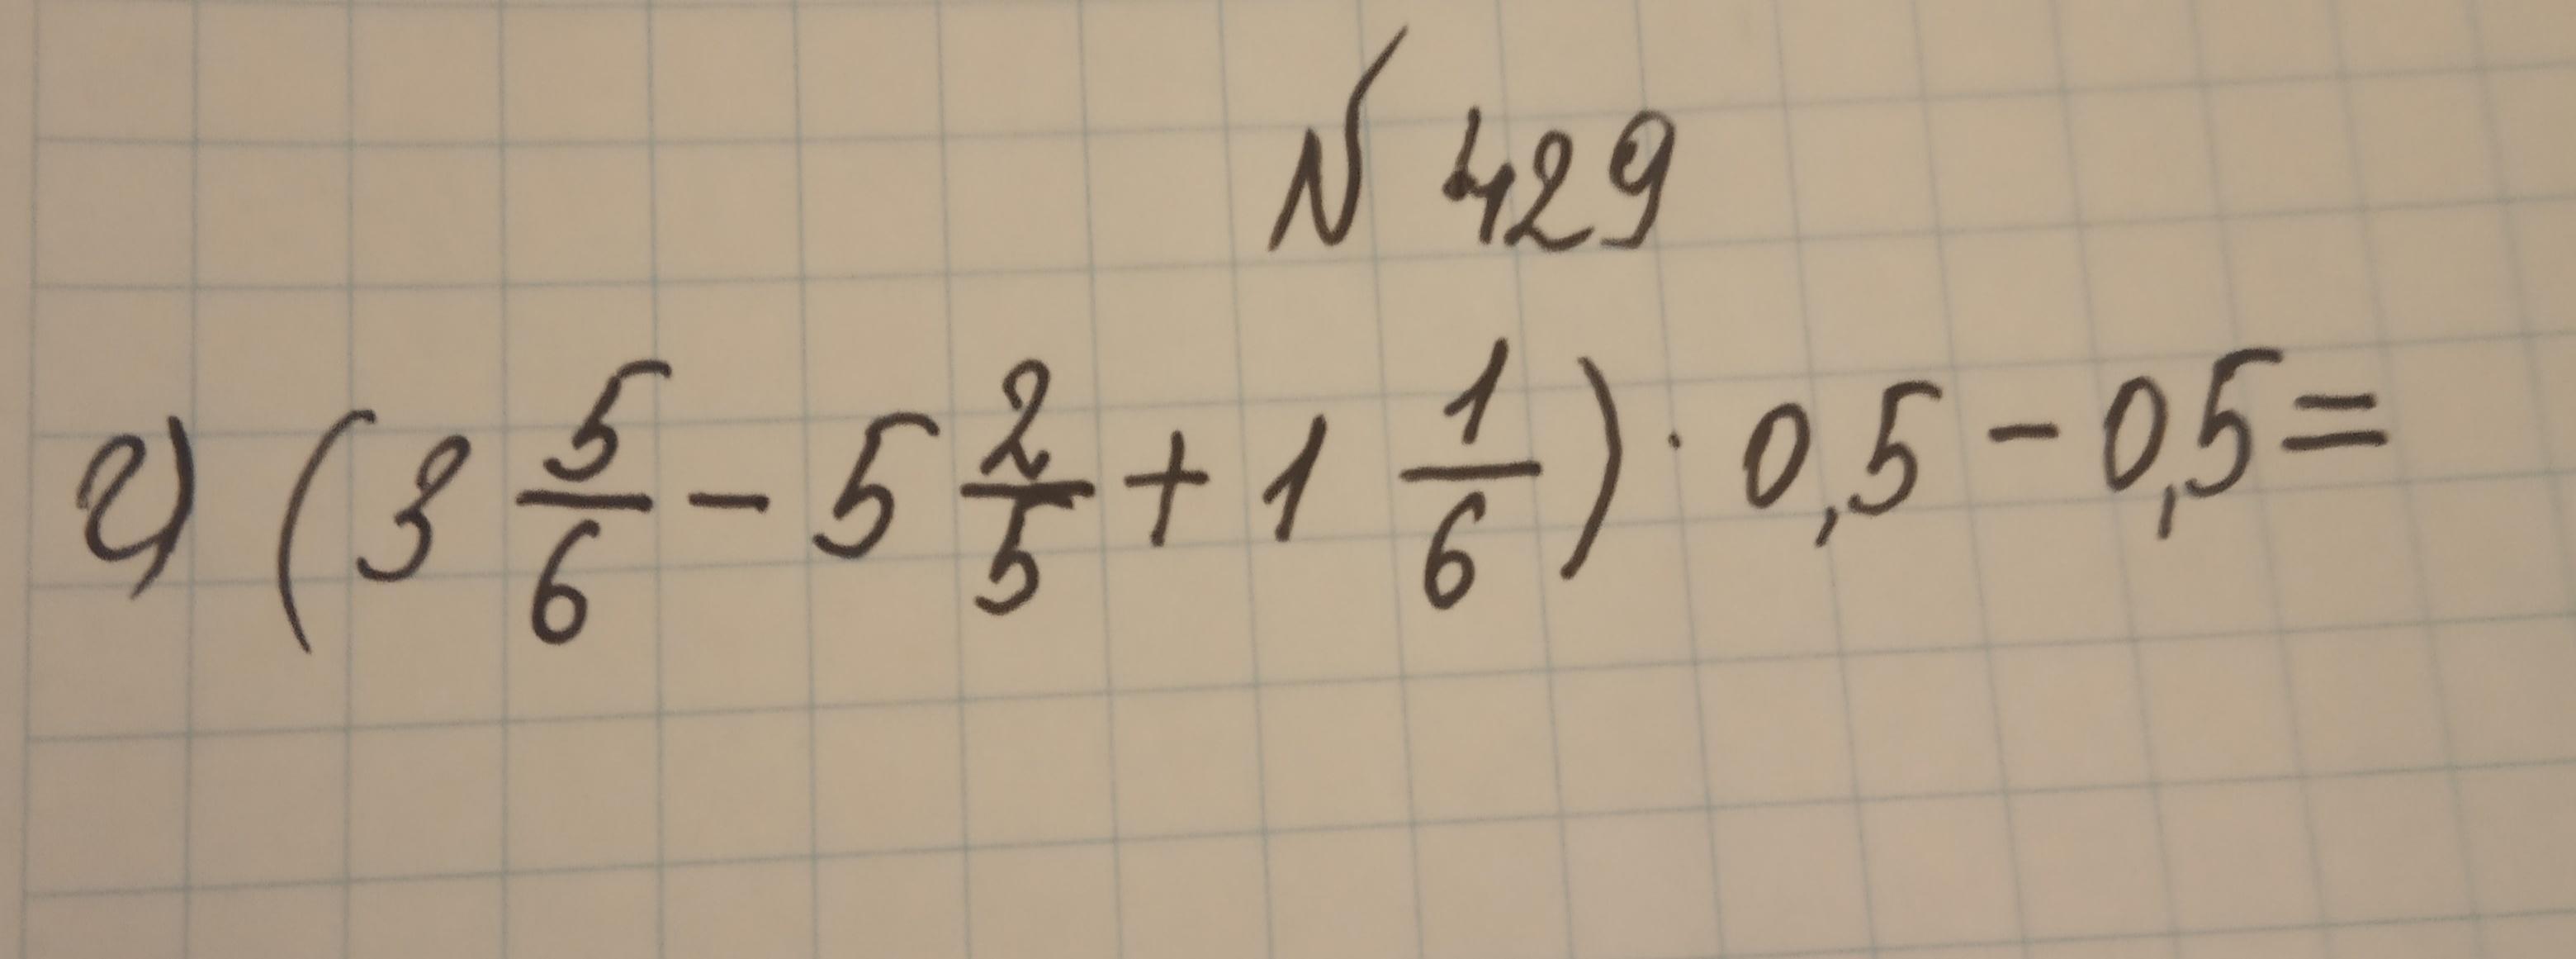 № 429
г) (3 5/6 - 5 2/5 + 1 1/6) · 0,5 - 0,5 =